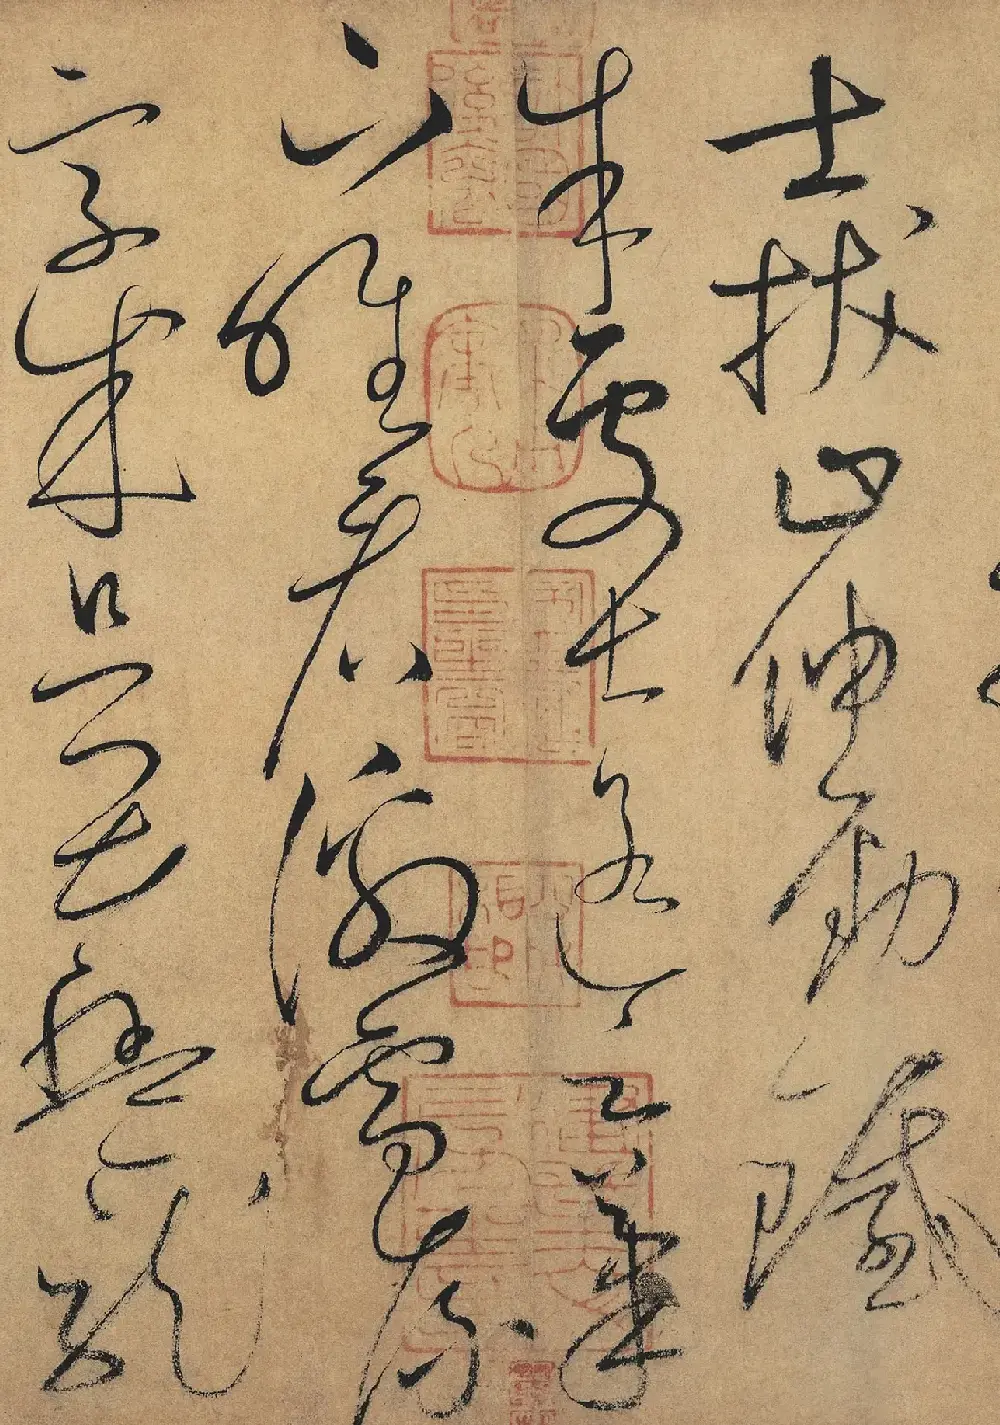 士拔山伸勁鐵
朱處士遙云筆
下唯看激電流
字成只畏盤龍